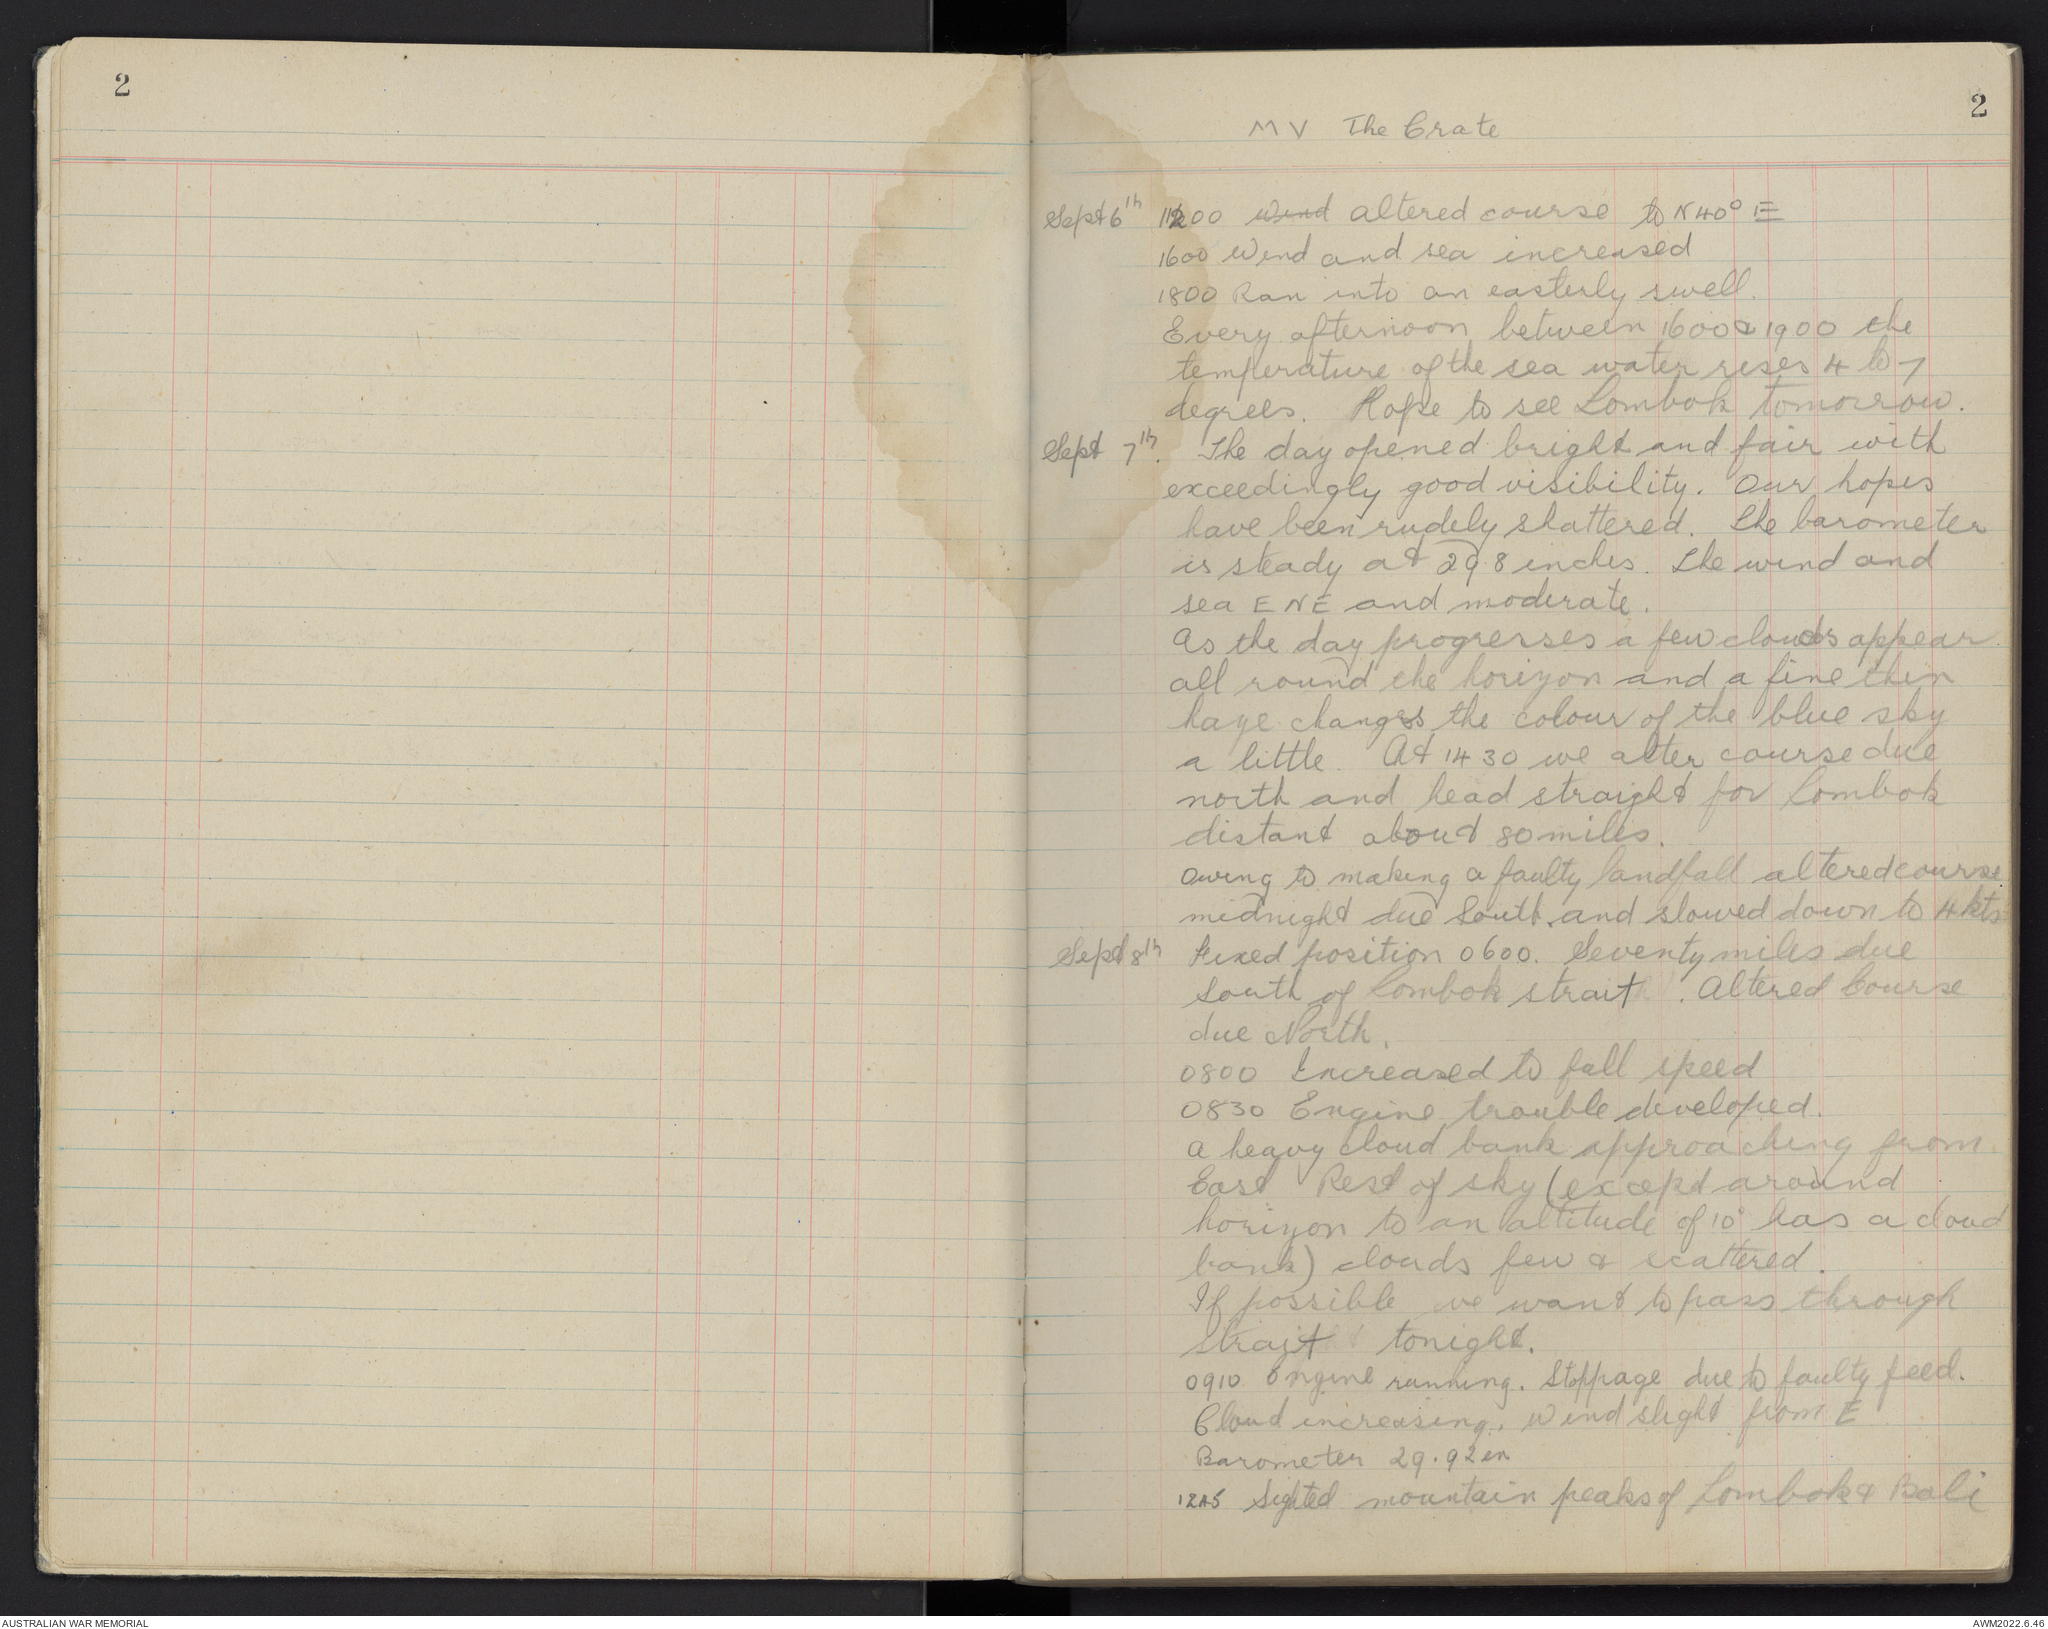 2
2
MV The Crate
Sept 6th 1200 Wind altered course to N 40° E
1600 Wind and sea increased
1800 Ran into an easterly swell.
Every afternoon between 1600 & 1900 the
temperature of the sea water rises 4 to 7
degrees. Hope to see Lombok tomorrow.
Sept 7th. The day opened bright and fair with
exceedingly good visibility. Our hopes
have been rudely shattered. The barometer
is steady at 29.8 inches. The wind and
sea ENE and moderate.
As the day progresses a few clouds appear
all round the horizon and a fine thin
haze changes the colour of the blue sky
a little. At 1430 we alter course due
north and head straight for Lombok
distant about 80 miles.
Owing to making a faulty landfall altered course
midnight due South and slowed down to 4 kts
Sept 8th Fixed position 0600. Seventy miles due
South of Lombok strait. Altered Course
due North.
0800 Increased to full speed
0830 Engine trouble developed.
A heavy cloud bank approaching from
East Rest of sky (except around
horizon to an altitude of 10° has a cloud
bank) clouds few & scattered.
If possible we want to pass through
strait tonight.
0910 Engine running. Stoppage due to faulty feed.
Cloud increasing. Wind slight from E
Barometer 29.92 in
1245 Sighted mountain peaks of Lombok & Bali
AUSTRALIAN WAR MEMORIAL
AWM2022.6.46